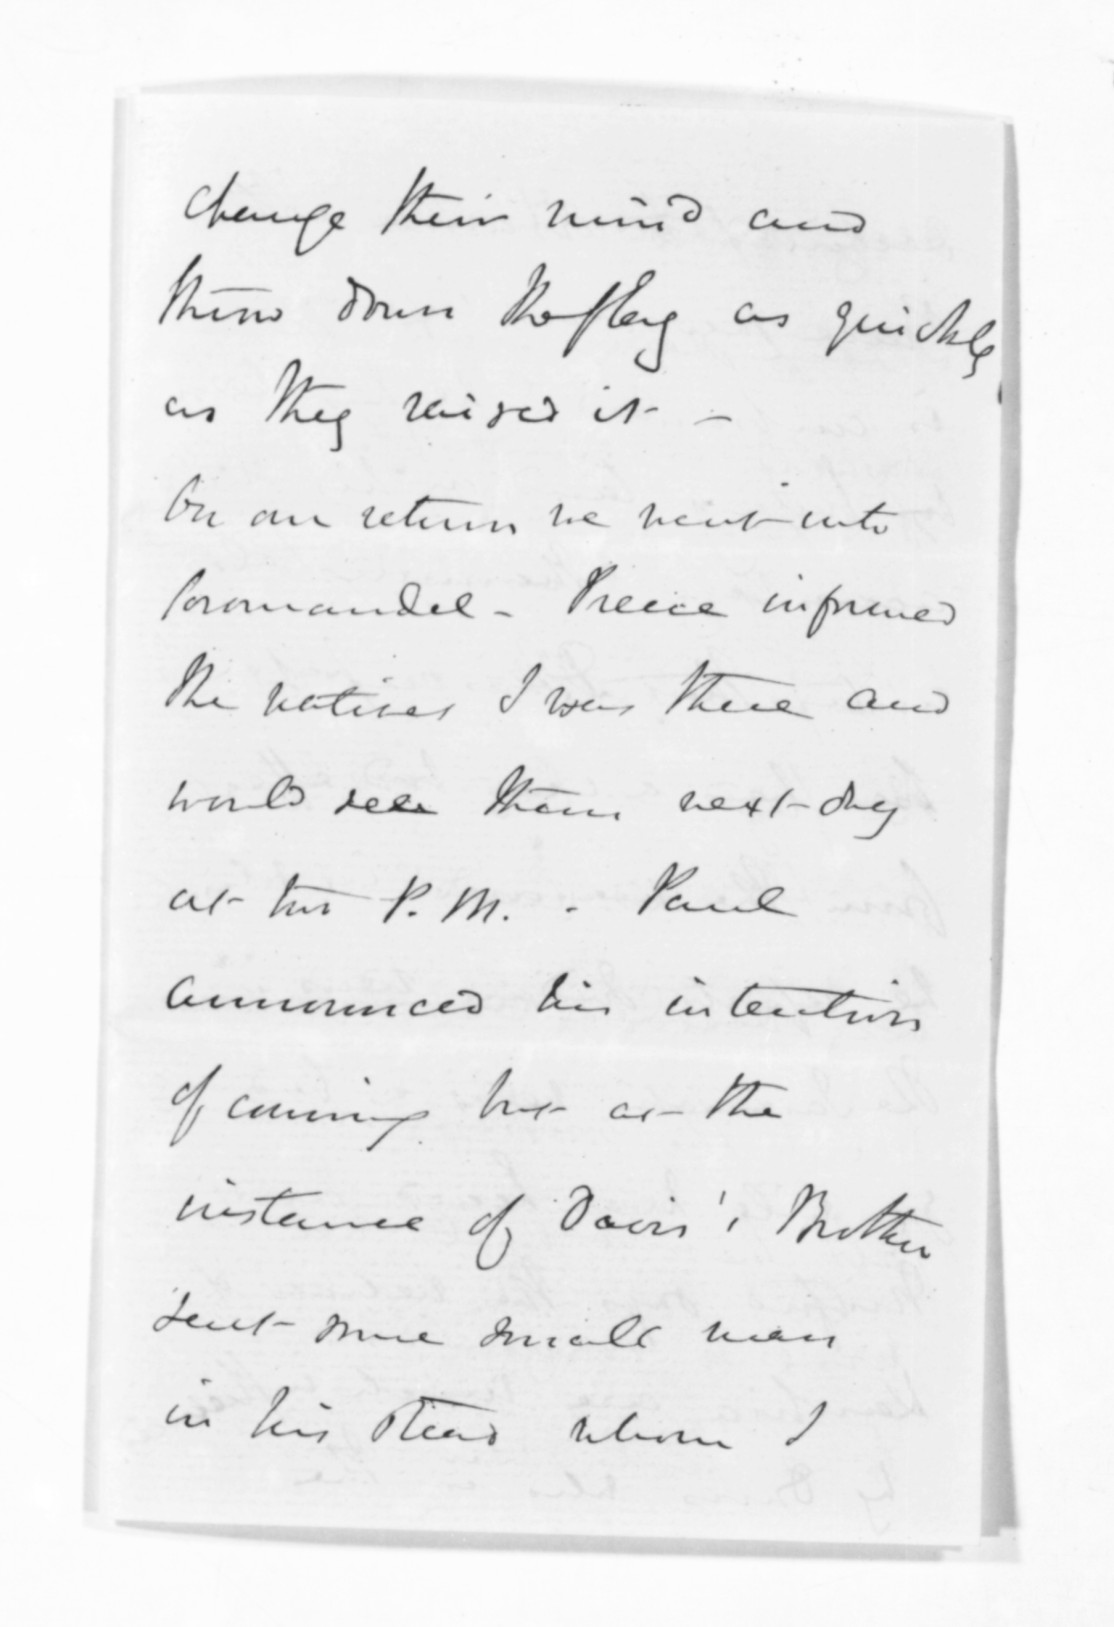 change their mind and
throw down the flag as quickly
as they raised it -
On our return we went into
Coromandel - Preece informed
the natives I was there and
would see them next day
at two P.M. - Paul
announced his intention
of coming but at the
instance of Davis' Brother
sent some small man
in his stead whom I